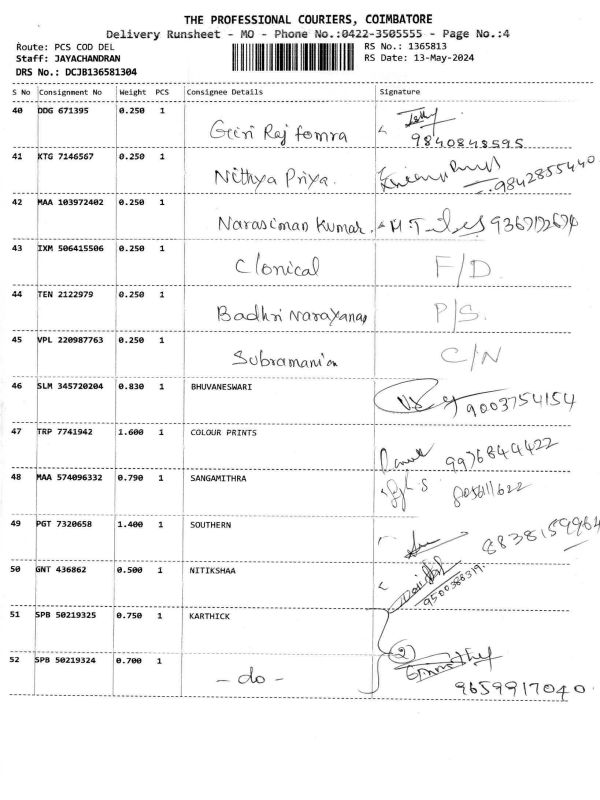 THE PROFESSIONAL COURIERS, COIMBATORE
Delivery Runsheet - MO - Phone No.:0422-3505555 - Page No.:4
Route: PCS COD DEL
RS No.: 1365813
Staff: JAYACHANDRAN
RS Date: 13-May-2024
DRS No.: DCJB136581304
S No Consignment No Weight PCS Consignee Details Signature
40 DDG 671395 0.250 1 Giri Raj fomra 9840848595
41 KTG 7146567 0.250 1 Nithya Priya. 9842855440
42 MAA 103972402 0.250 1 Narasiman Kumar.
43 IXM 506415506 0.250 1 Clonical F/D.
44 TEN 2122979 0.250 1 Badhri Narayanan P/S.
45 VPL 220987763 0.250 1 Subramanian C/N
46 SLM 345720204 0.830 1 BHUVANESWARI 9003754154
47 TRP 7741942 1.600 1 COLOUR PRINTS 9976844422
48 MAA 574096332 0.790 1 SANGAMITHRA
49 PGT 7320658 1.400 1 SOUTHERN 8838159964
50 GNT 436862 0.500 1 NITIKSHAA
51 SPB 50219325 0.750 1 KARTHICK
52 SPB 50219324 0.700 1 - do - 2
9659917040.